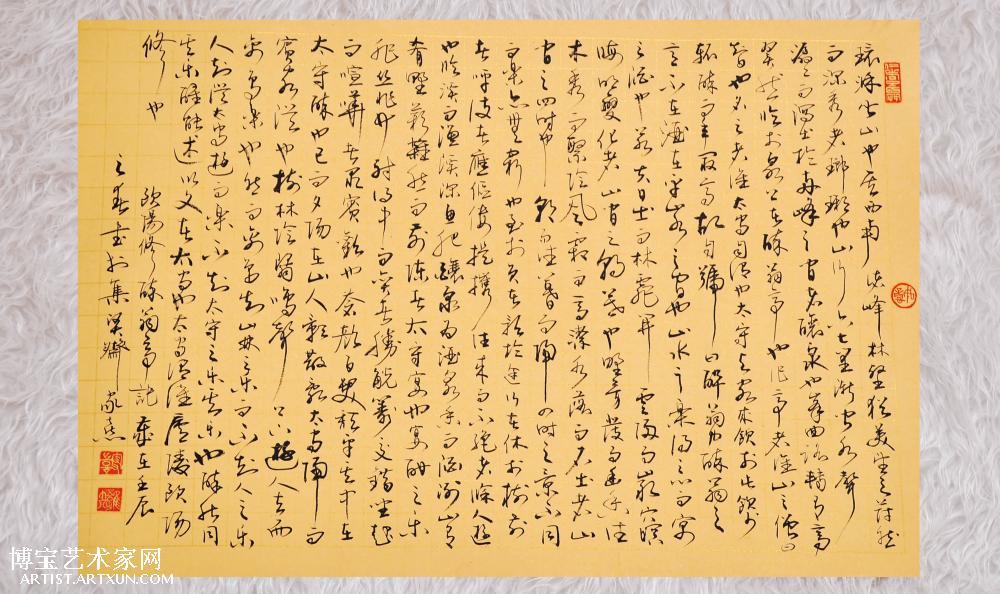 環滁皆山也其西南諸峰林壑猶美望之蔚然
而深秀者瑯琊也山行六七里漸聞水聲
潺潺而瀉出於兩峰之間者釀泉也峰回路轉有亭
翼然臨於泉上者醉翁亭也作亭者誰山之僧曰
智也名之者誰太守自謂也太守與客來飲於此飲少
輒醉而年最高故自號曰醉翁也醉翁之
意不在酒在乎山水之間也山水之樂得之心而寓
之酒也若夫日出而林霏開雲歸而巖穴暝
晦明變化者山間之朝暮也野芳發而幽香佳
木秀而繁陰風霜高潔水落而石出者山
間之四時也朝而往暮而歸四時之景不同
而樂亦無窮也至於負者歌於途行者休於樹前
者呼後者應傴僂提攜往來而不絕者滁人遊
也臨溪而漁溪深魚肥釀泉為酒泉香而酒洌山
肴野蔌雜然而前陳者太守宴也宴酣之樂
非絲非竹射者中而弈者勝觥籌交錯坐起
而喧嘩者眾賓歡也蒼顏白髮頹乎其中者
太守醉也已而夕陽在山人影散亂太守歸而
賓客從也樹林陰翳鳴聲上下遊人去而
禽鳥樂也然而禽鳥知山林之樂而不知人之樂
人知從太守遊而樂不知太守之樂其樂也醉能同
其樂醒能述以文者太守也太守謂誰廬陵歐陽
修也
歐陽修醉翁亭記 歲在壬辰
之春書於集 齋家熹
博宝艺术家网
ARTIST.ARTXUN.COM